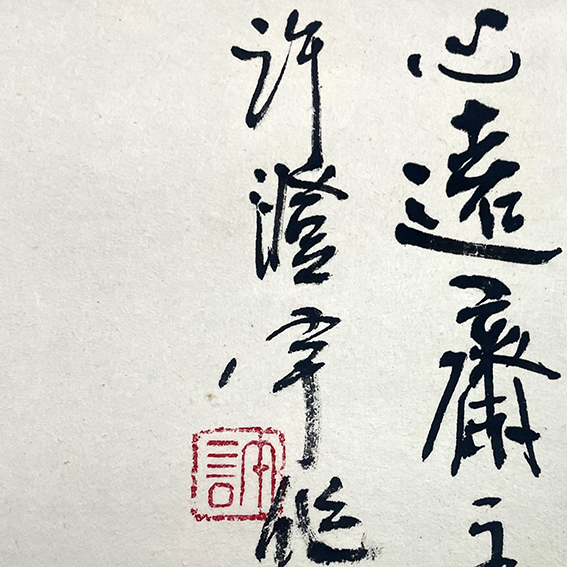 心遠齋主
許澄宇作
許